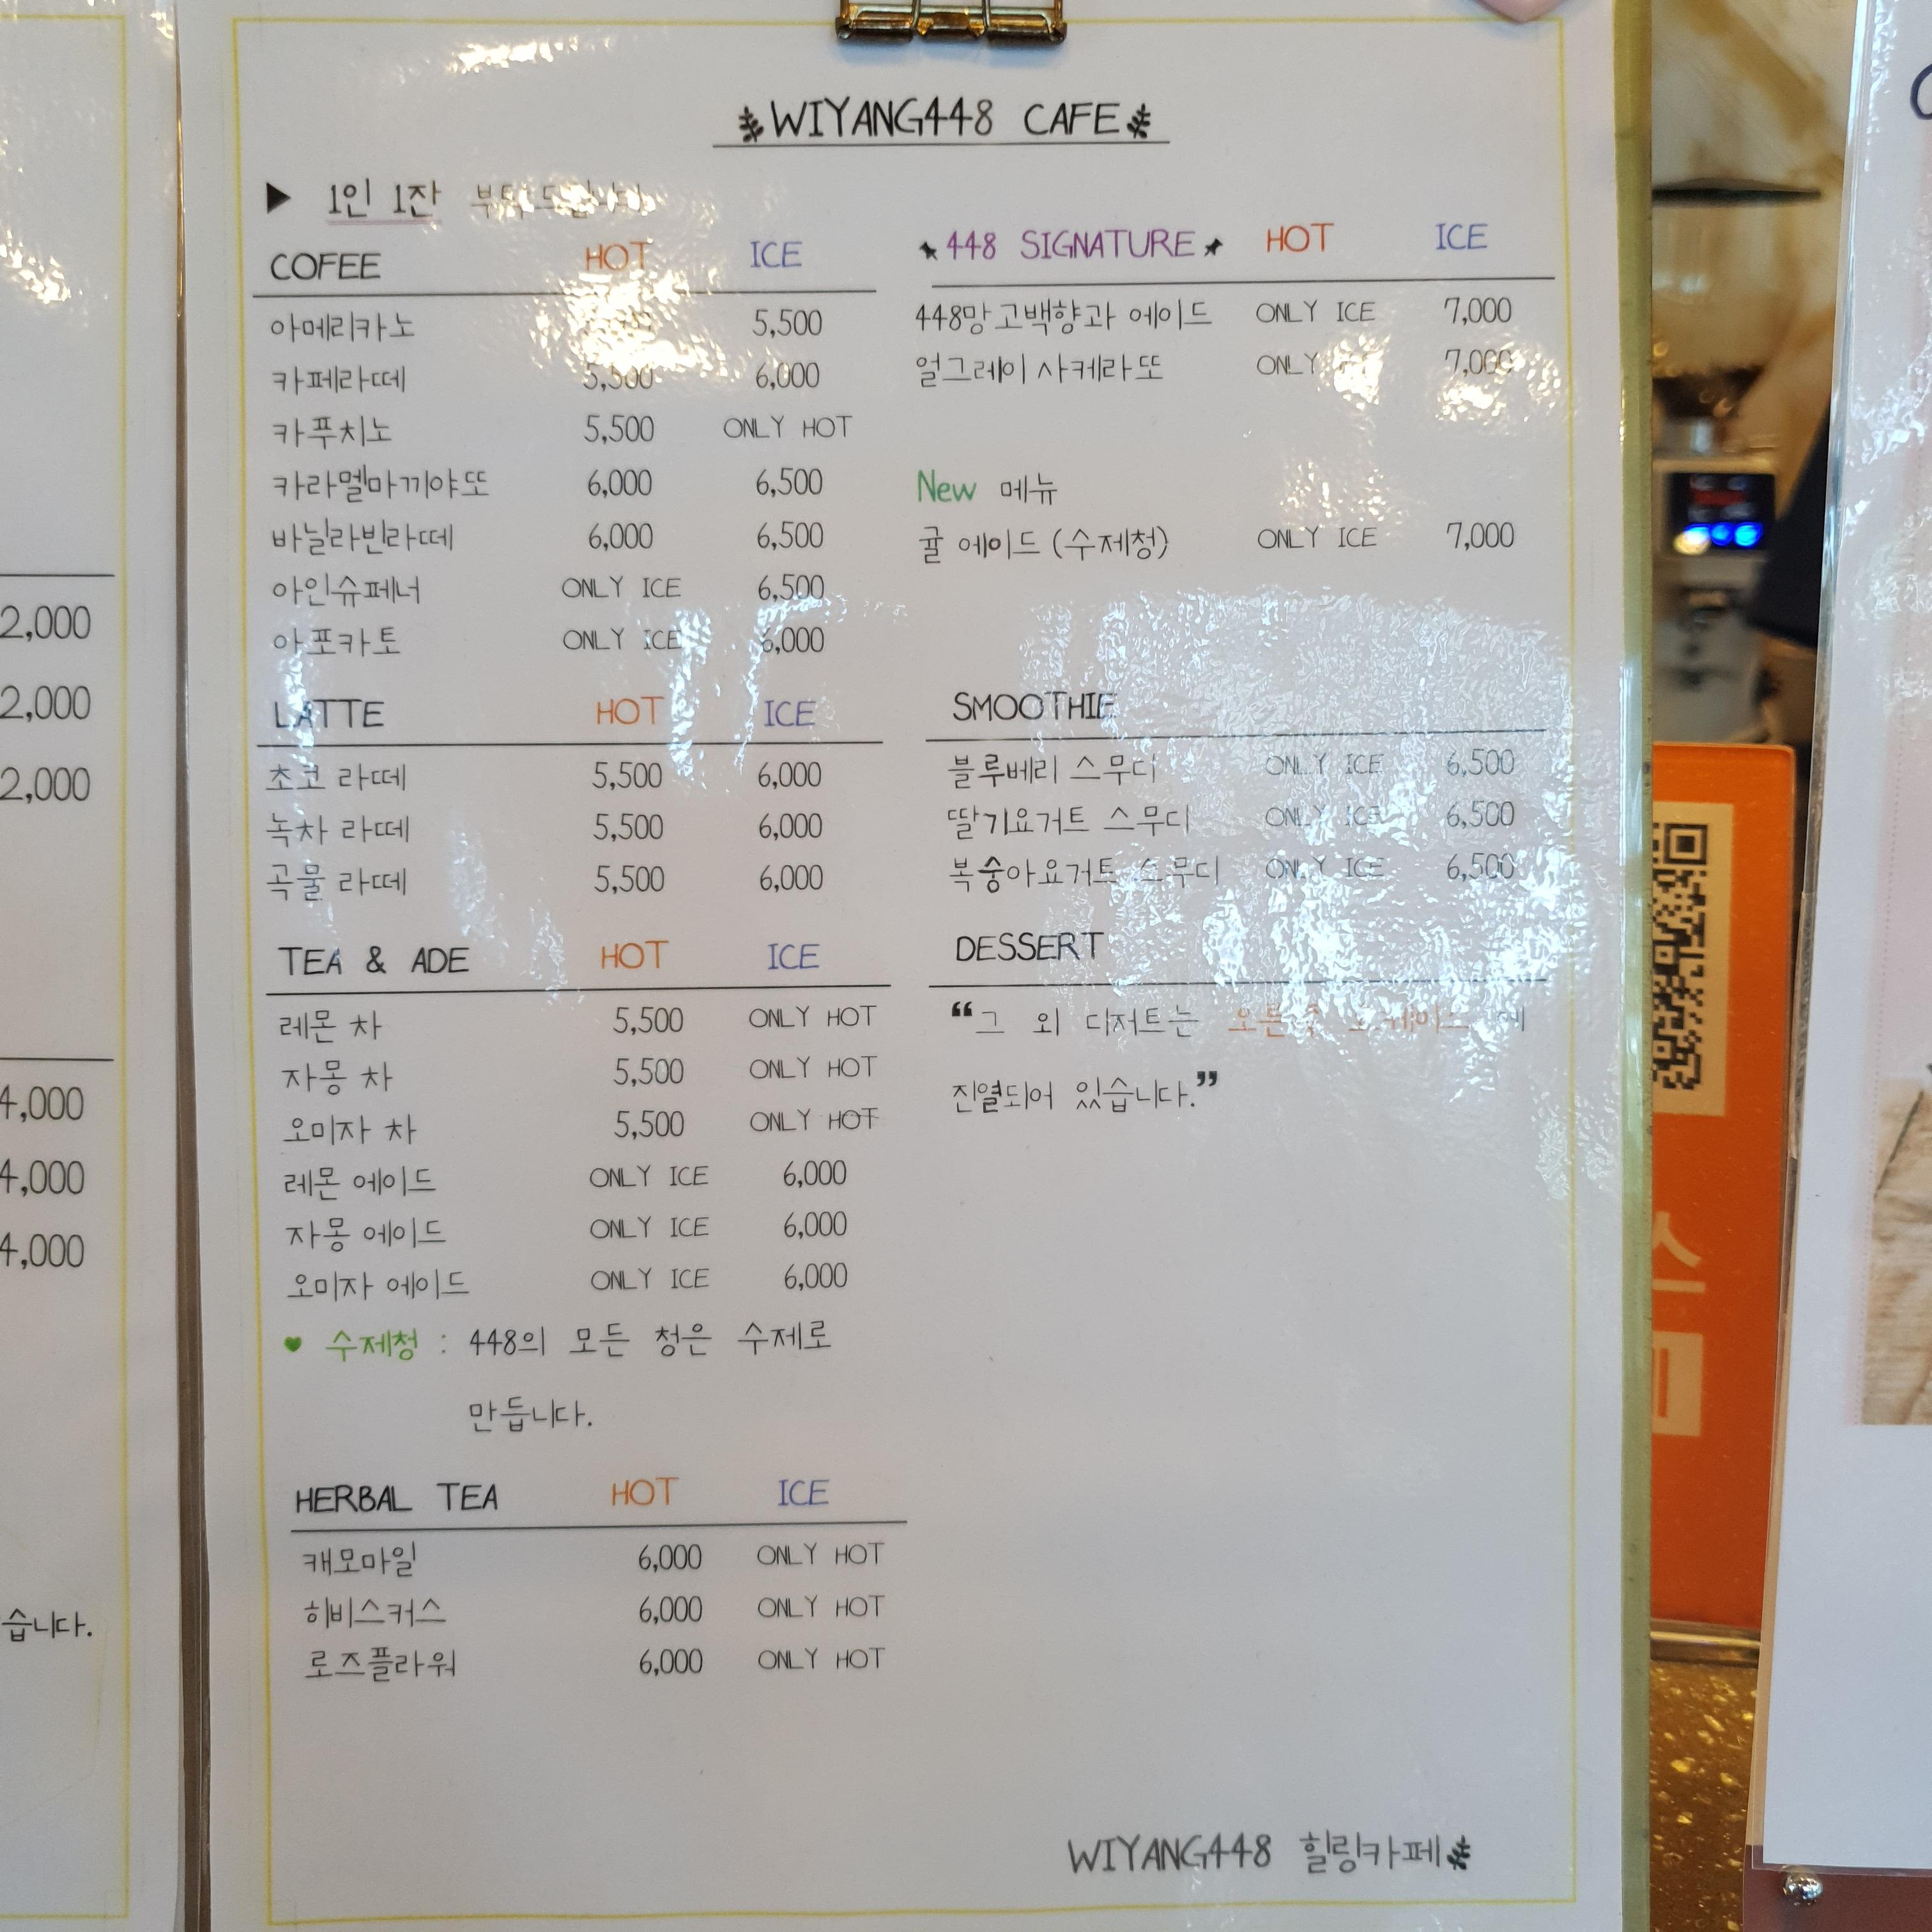 WIYANG448 CAFE
▶ 1인 1잔
COFEE HOT ICE
아메리카노 5,500
카페라떼 5,500 6,000
카푸치노 5,500 ONLY HOT
카라멜마끼야또 6,000 6,500
바닐라빈라떼 6,000 6,500
아인슈페너 ONLY ICE 6,500
아포카토 ONLY ICE 6,000
LATTE HOT ICE
초코 라떼 5,500 6,000
녹차 라떼 5,500 6,000
곡물 라떼 5,500 6,000
TEA & ADE HOT ICE
레몬 차 5,500 ONLY HOT
자몽 차 5,500 ONLY HOT
오미자 차 5,500 ONLY HOT
레몬 에이드 ONLY ICE 6,000
자몽 에이드 ONLY ICE 6,000
오미자 에이드 ONLY ICE 6,000
♥ 수제청 : 448의 모든 청은 수제로
만듭니다.
HERBAL TEA HOT ICE
캐모마일 6,000 ONLY HOT
히비스커스 6,000 ONLY HOT
로즈플라워 6,000 ONLY HOT
448 SIGNATURE HOT ICE
448망고백향과 에이드 ONLY ICE 7,000
얼그레이 사케라또 ONLY 7,000
New 메뉴
귤 에이드 (수제청) ONLY ICE 7,000
SMOOTHIE
블루베리 스무디 ONLY ICE 6,500
딸기요거트 스무디 ONLY ICE 6,500
복숭아요거트 스무디 ONLY ICE 6,500
DESSERT
“그 외 디저트는 오른쪽
진열되어 있습니다.”
WIYANG448 힐링카페
2,000
2,000
2,000
4,000
4,000
4,000
습니다.